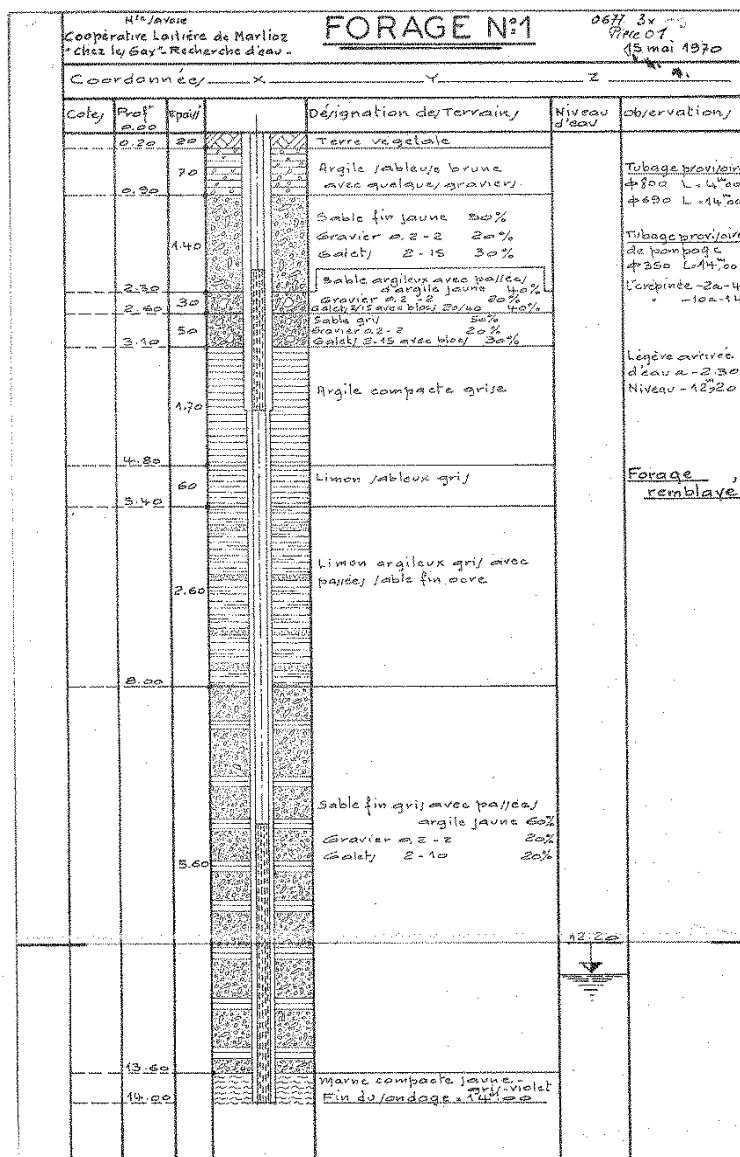 Hte Savoie
Coopérative Laitière de Marlioz
"Chez les Gay" Recherche d'eau.
FORAGE N:1
0677 3x
Pièce 01
15 mai 1970
Coordonnées X Y Z
Cotes
Profr
Epaiss
Désignation des Terrains
Niveau d'eau
Observations
0.00
0.20 20 Terre vegetale
70 Argile sableuse brune
avec quelques graviers.
0.90
Tubage provisoire
φ800 L = 4m00
φ690 L = 14m00
1.40 Sable fin jaune 50%
Gravier 0,2 - 2 20%
Galets 2 - 15 30%
Tubage provisoire
de pompage
φ350 L = 14m,00
Crépinée -2 a -4
" -10 a -14
2.30
30 Sable argileux avec passées
d'argile jaune 40%
Gravier 0,2 - 2 20%
Galets 2/15 avec blocs 20/40 40%
2.60
50 Sable gris 50%
Gravier 0,2 - 2 20%
Galets 2-15 avec blocs 30%
3.10
1.70 Argile compacte grise
Légère arrivée
d'eau a - 2.30
Niveau - 12m20
4.80
60 Limon sableux gris
Forage
remblayé
5.40
2.60 Limon argileux gris avec
passées sable fin ocre
8.00
5.60 Sable fin gris avec passées
argile jaune 60%
Gravier 0,2 - 2 20%
Galets 2 - 10 20%
12.20
13.60
Marne compacte jaune -
gris-violet
14.00 Fin du sondage = 14m00